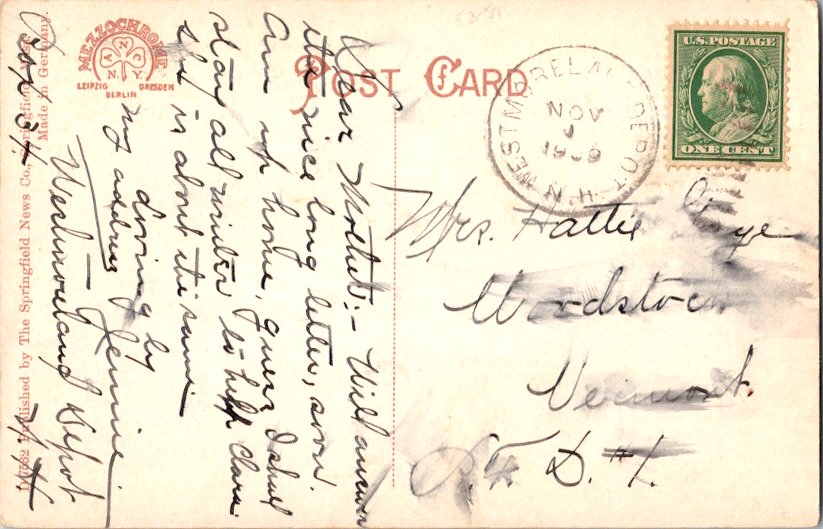 Dear Mother:- Will answer
the nice long letter, soon.
Am up home, guess I shall
stay all winter to help Clara.
she is about the same
lovingly
Jennie.
My address
Westmoreland Depot
N.H.
Box 34
POST CARD
MEZZOCHROME
ANC
N.Y.
LEIPZIG DRESDEN
BERLIN
Published by The Springfield News Co., Springfield, Mass.
Made in Germany.
WESTMORELAND DEPOT N.H.
NOV
1909
U.S. POSTAGE
ONE CENT
Mrs. Hattie
Woodstock
Vermont.
R. F. D. #1.